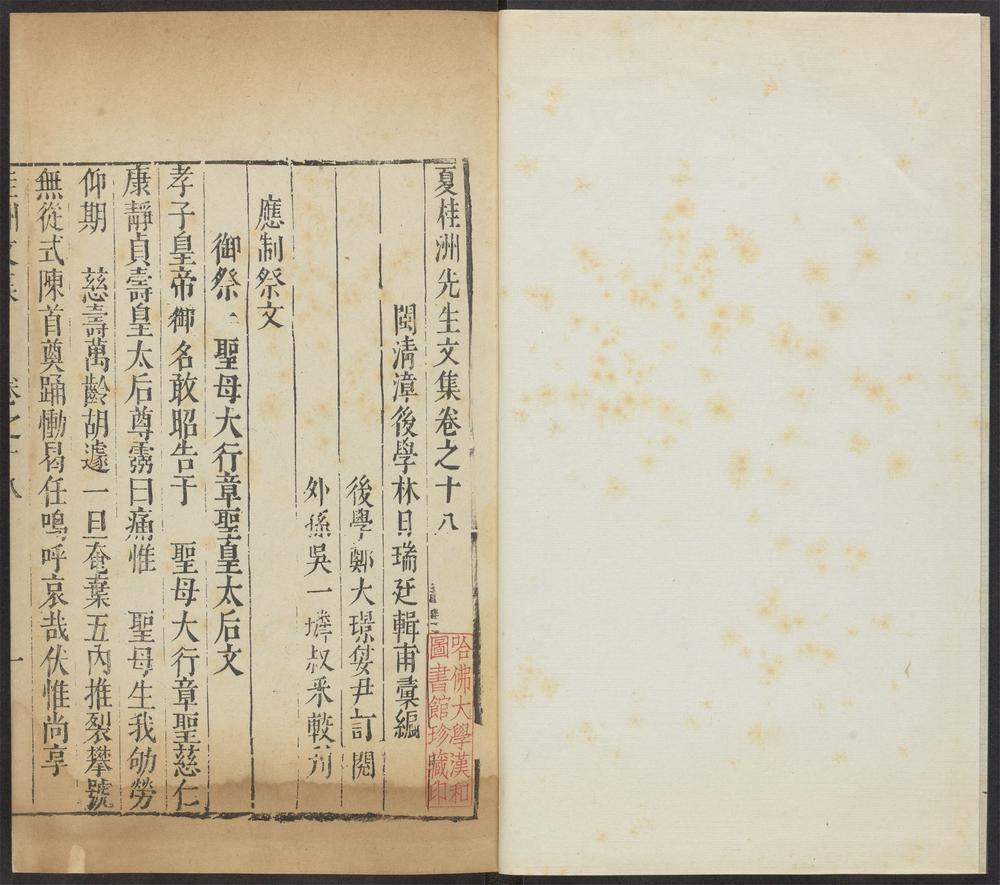 夏桂洲先生文集卷之十八
閩淸漳後學林日瑞廷輯甫彙編
後學鄭大璟娑尹訂閱
外孫吳一墀叔釆較刋
應制祭文
御祭 聖母大行章聖皇太后文
孝子皇帝御名敢昭告于 聖母大行章聖慈仁
康靜貞壽皇太后尊靈曰痛惟 聖母生我劬勞
仰期 慈壽萬齡胡遽一旦奄棄五內推裂攀號
無從式陳首奠踊慟曷任嗚呼哀哉伏惟尚享
桂洲文集 卷之十八 一
哈佛大學漢和
圖書館珍藏印